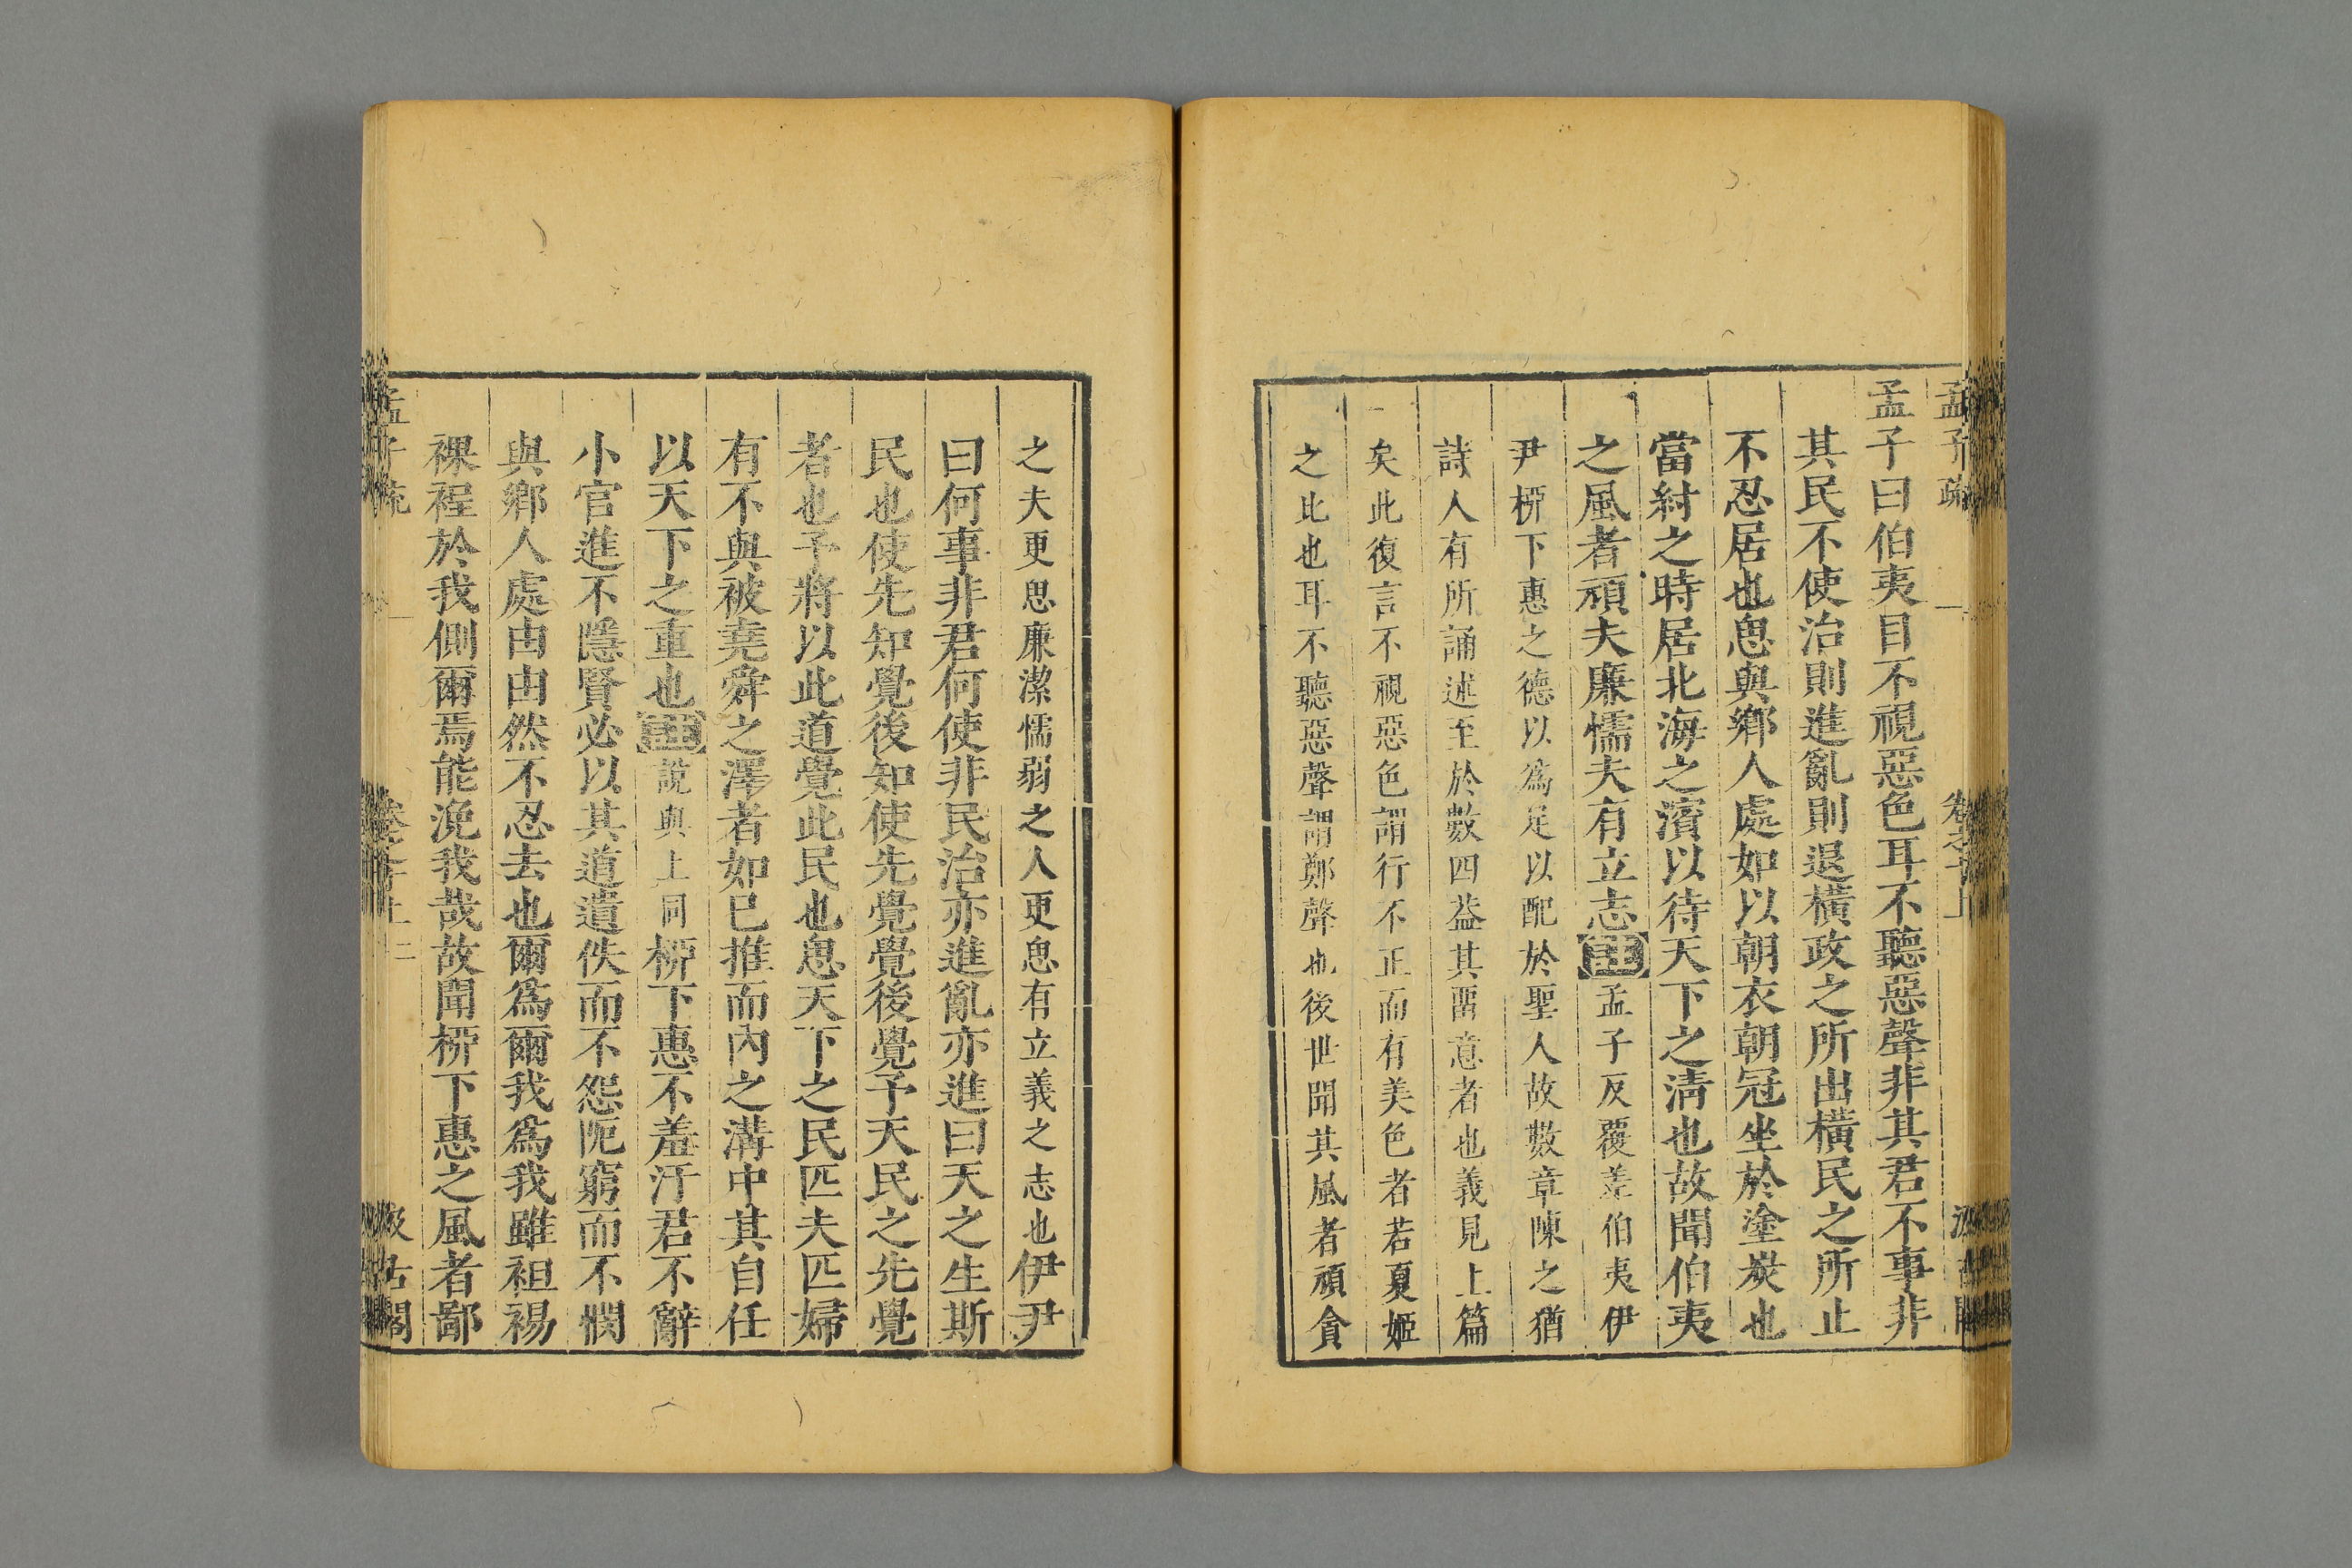 孟子疏
孟子曰伯夷目不視惡色耳不聽惡聲非其君不事非
其民不使治則進亂則退橫政之所出橫民之所止
不忍居也思與鄉人處如以朝衣朝冠坐於塗炭也
當紂之時居北海之濱以待天下之淸也故聞伯夷
之風者頑夫廉懦夫有立志註孟子反覆差伯夷伊
尹桺下惠之德以爲足以配於聖人故數章陳之猶
詩人有所誦述至於數四葢其畱意者也義見上篇
矣此復言不視惡色謂行不正而有美色者若夏姬
之比也耳不聽惡聲謂鄭聲也後世聞其風者頑貪
之夫更思廉潔懦弱之人更思有立義之志也伊尹
曰何事非君何使非民治亦進亂亦進曰天之生斯
民也使先知覺後知使先覺覺後覺予天民之先覺
者也予將以此道覺此民也思天下之民匹夫匹婦
有不與被堯舜之澤者如已推而內之溝中其自任
以天下之重也註說與上同桺下惠不羞汙君不辭
小官進不隱賢必以其道遺佚而不怨阨窮而不憫
與鄉人處由由然不忍去也爾爲爾我爲我雖袒裼
裸裎於我側爾焉能浼我哉故聞桺下惠之風者鄙
古閣